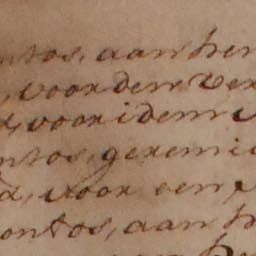 ontos, aan hen
, voor dem ver
d, voor idem
ontos, geremi
d, voor een
ontos, aan h